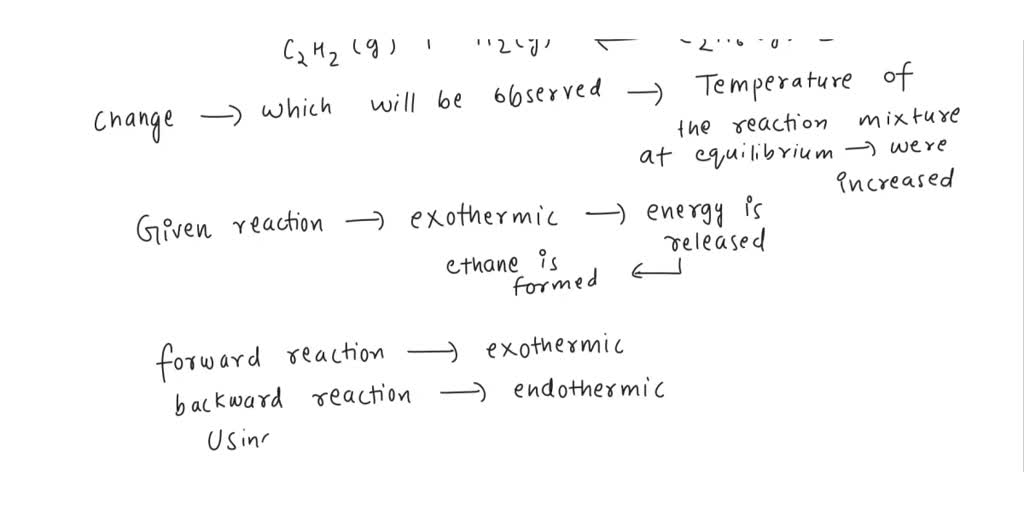 C₂H₂ (g)
Change → which will be observed → Temperature of
the reaction mixture
at equilibrium → were
increased
Given reaction → exothermic → energy is
released
ethane is
formed
forward reaction → exothermic
backward reaction → endothermic
Usin